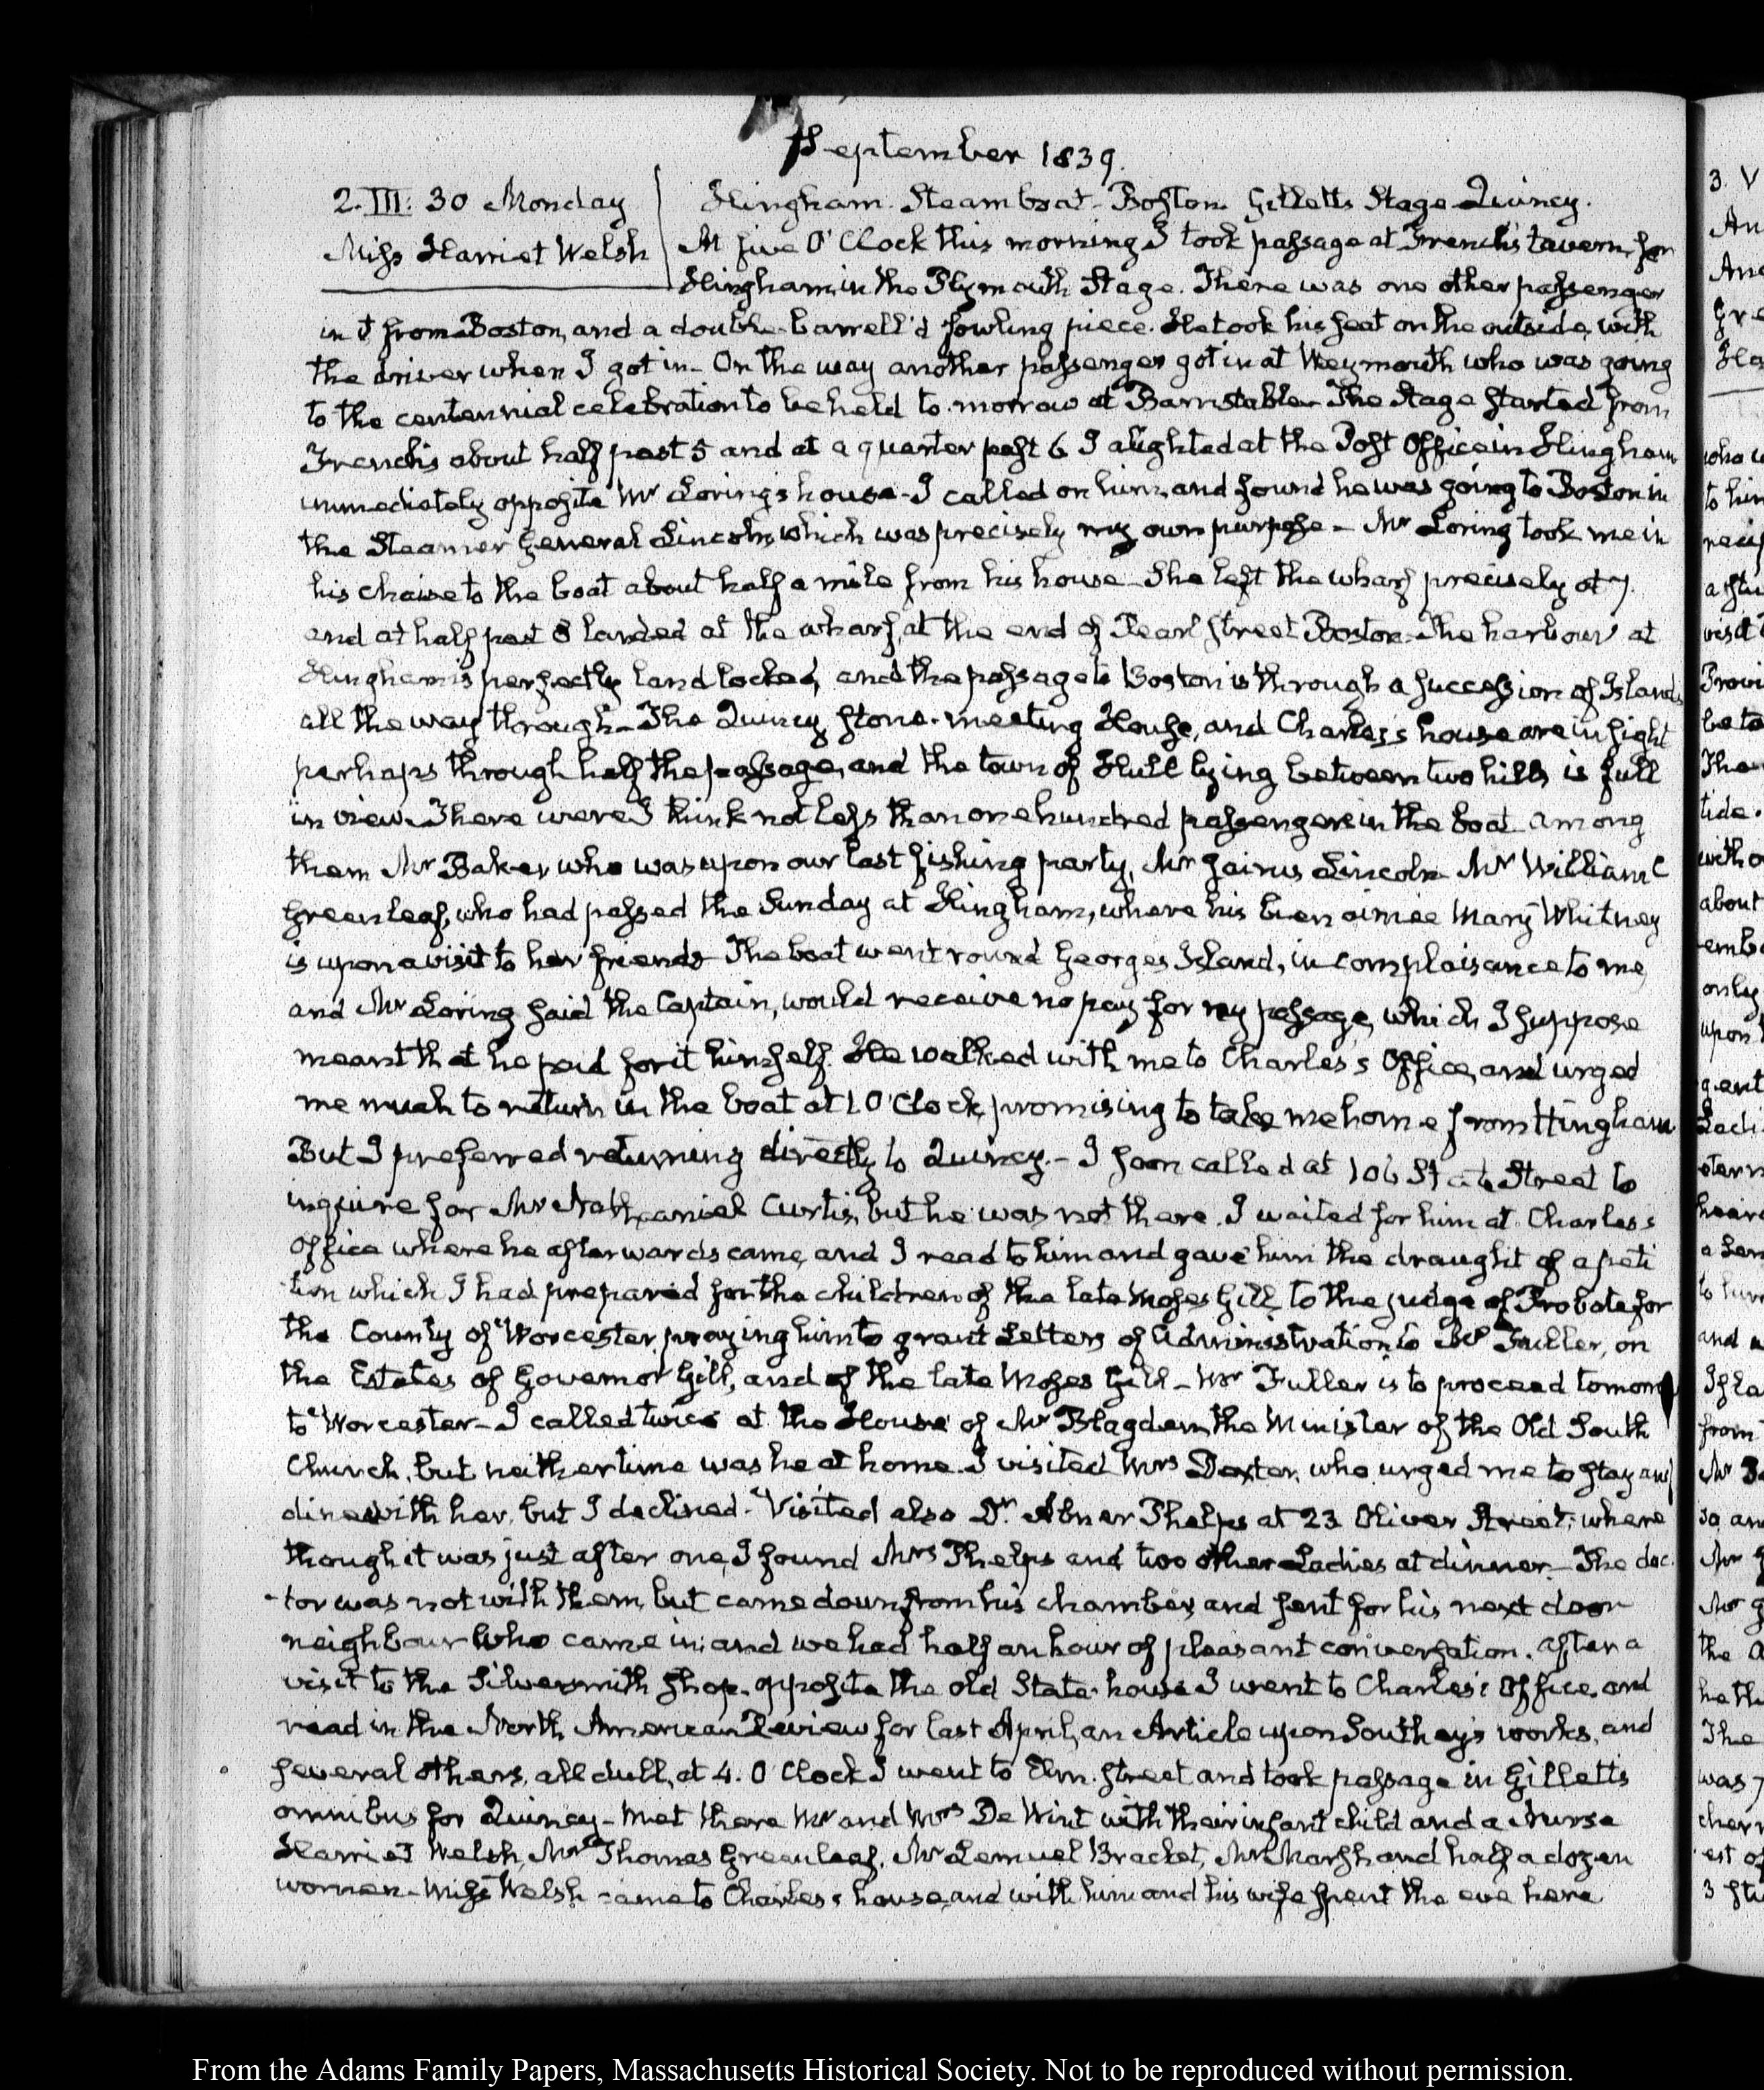 September 1839.
2. III: 30 Monday
Miss Harriet Welsh
Hingham. Steamboat. Boston. Gilletts Stage Quincy.
At five O'Clock this morning I took passage at French's tavern, for
Hingham, in the Plymouth Stage. There was one other passenger
in it from Boston, and a double-barrell'd fowling piece. He took his seat on the outside, with
the driver when I got in - On the way another passenger got in at Weymouth who was going
to the centennial celebration to be held to-morrow at Barnstable. The Stage started from
French's about half past 5 and at a quarter past 6 I alighted at the Post Office in Hingham
immediately opposite Mr Loring's house - I called on him, and found he was going to Boston in
the Steamer General Lincoln, which was precisely my own purpose - Mr Loring took me in
his chaise to the boat about half a mile from his house - She left the wharf precisely at 7.
and at half past 8 landed at the wharf, at the end of Pearl Street Boston - The harbour at
Hingham is perfectly land locked, and the passage to Boston is through a succession of Islands
all the way through - The Quincy stone-meeting House, and Charles's house are in sight
perhaps through half the passage, and the town of Hull lying between two hills is full
in view. There were I think not less than one hundred passengers in the boat among
them Mr Baker who was upon our last fishing party, Mr Jairus Lincoln Mr William C
Greenleaf, who had passed the Sunday at Hingham, where his bien aimée Mary Whitney
is upon a visit to her friends - The boat went round Georges Island, in complaisance to me,
and Mr Loring said the Captain, would receive no pay for my passage, which I suppose
meant that he paid for it himself. He walked with me to Charles's Office, and urged
me much to return in the boat at 10 O'Clock, promising to take me home from Hingham
But I preferred returning directly to Quincy. - I soon called at 106 State Street to
inquire for Mr Nathaniel Curtis, but he was not there. I waited for him at Charles's
Office where he afterwards came, and I read to him and gave him the draught of a peti
tion which I had prepared for the children of the late Moses Gill, to the judge of Probate for
the County of Worcester, praying him to grant Letters of Administration to Mr Fuller, on
the Estates of Governor Gill, and of the late Moses Gill - Mr Fuller is to proceed tomorrow
to Worcester - I called twice at the House of Mr Blagden, the Minister of the Old South
Church, but neither time was he at home. I visited Mrs Dexter, who urged me to stay and
dine with her, but I declined - Visited also Dr Abner Phelps at 23 Oliver Street; where
though it was just after one, I found Mrs Phelps and two other Ladies at dinner - The doc-
-tor was not with them, but came down from his chamber, and sent for his next door
neighbour who came in; and we had half an hour of pleasant conversation. After a
visit to the Silversmith shop opposite the old State-house I went to Charles's Office, and
read in the North American Review for last April, an Article upon Southey's works, and
several others, all dull, at 4. O'Clock I went to Elm Street and took passage in Gilletts
omnibus for Quincy - Met there Mr and Mrs De Wint with their infant child and a Nurse
Harriet Welsh, Mrs Thomas Greenleaf, Mr Lemuel Bracket, Mr Marsh and half a dozen
women - Miss Welsh came to Charles's house, and with him and his wife spent the eve here
From the Adams Family Papers, Massachusetts Historical Society. Not to be reproduced without permission.